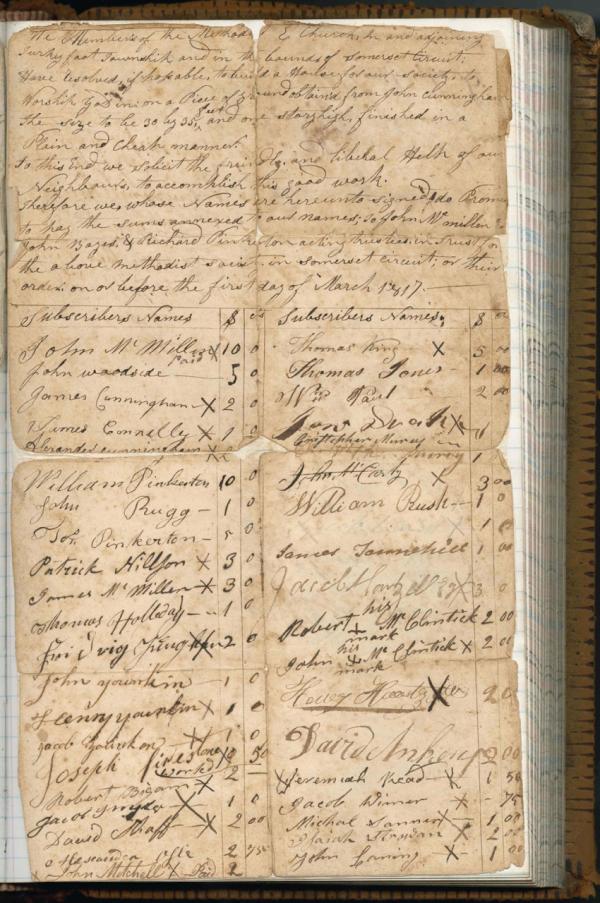 The Members of the Methodis E Church, in and adjoining
Turkyfoot Township and in the bounds of somerset Circuit;
Have resolved, if posable, to build a House for our society to
Worship God in; on a Piece of ground obtaind from John Cunningham
the size to be 30 by 35 feet and one story high, finished in a
Plain and cheap manner.
To this End we solicit the frindly, and liberal Help of our
Neighbours, to accomplish this good work.
therefore we, whose Names are hereunto signed, do Promis
to pay the sums annexed to our names; to John Mc millen
John & Richard Pinkerton acting trustees in trust for
the above methodist society in somerset circuit, or their
order; on or before the first day of March 1817.
Subscribers Names $ cs
John Mc Millen X 10 0
paid
John woodside 5 0
James Cunningham X 2 0
James Connelly X 1 0
Alexander Cunningham X
William Pinkerton 10 0
John Rugg 1 0
Pinkerton 5 0
Patrick Hillson X 3 0
James Mc Millen X 3 0
Thomas Holloday 1 0
2 0
John younkin 1 0
Henry younkin X 1 0
Jacob X 1 0
Joseph 50
worked 2
Robert X
Jacob X 1 0
David X 2 00
2 75
X John Mitchell X Paid 2
Subscribers Names; $ cs
Thomas King X 5 00
Thomas Jones 1 00
Wm Paul 2 00
X
Cristopher
1
John McCarty X 3 00
William Rush 1 0
1 0
James Tannehill 1 00
Jacob X 3 0
his
Robert Mc Clintick 2 00
mark
his
John Mc Clintick X 2 00
mark
X 2 0
David Ankeny 2 00
X Jeremiah Read 1 50
Jacob X 75
Michal X 1 00
Isaiah X 2 00
John X 1 00